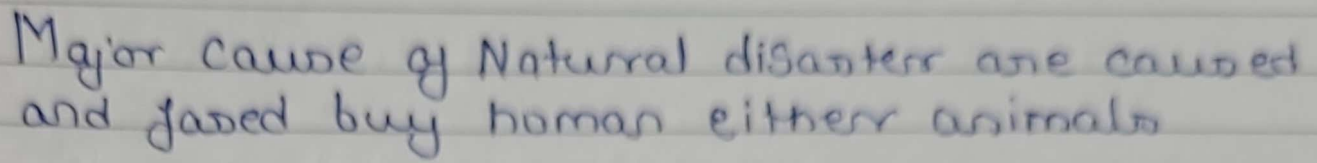 Major cause of Natural disaster are caused
and faced buy homan either animals